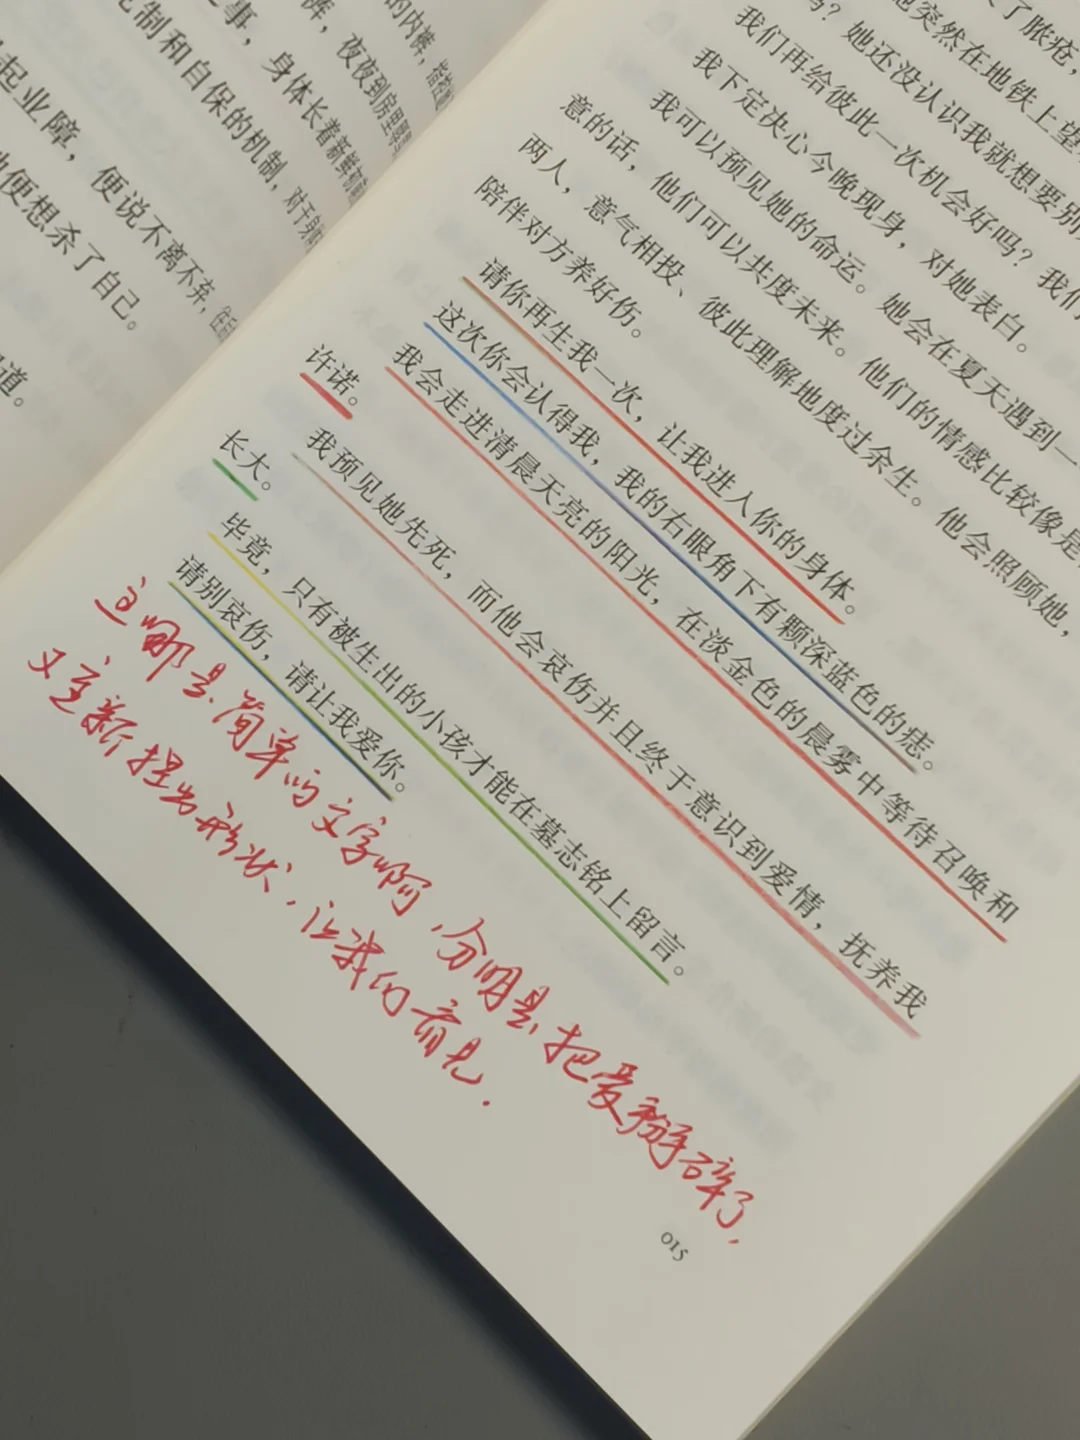 的内裤，
裤，夜夜到房里
事，身体长着新鲜
机制和自保的机制，对于身
起业障，便说不离不弃，任
他便想杀了自己。
知道。
了脓疮，
她突然在地铁上望
吗？她还没认识我就想要别
我们再给彼此一次机会好吗？我们
我下定决心今晚现身，对她表白。
我可以预见她的命运。她会在夏天遇到一
意的话，他们可以共度未来。他们的情感比较像是
两人，意气相投、彼此理解地度过余生。他会照顾她，
陪伴对方养好伤。
请你再生我一次，让我进入你的身体。
这次你会认得我，我的右眼角下有颗深蓝色的痣。
我会走进清晨天亮的阳光，在淡金色的晨雾中等待召唤和
许诺。
我预见她先死，而他会哀伤并且终于意识到爱情，抚养我
长大。
毕竟，只有被生出的小孩才能在墓志铭上留言。
请别哀伤，请让我爱你。
这哪是简单的文字啊，分明是把爱掰碎了，
又重新捏出形状，让我们看见.
015